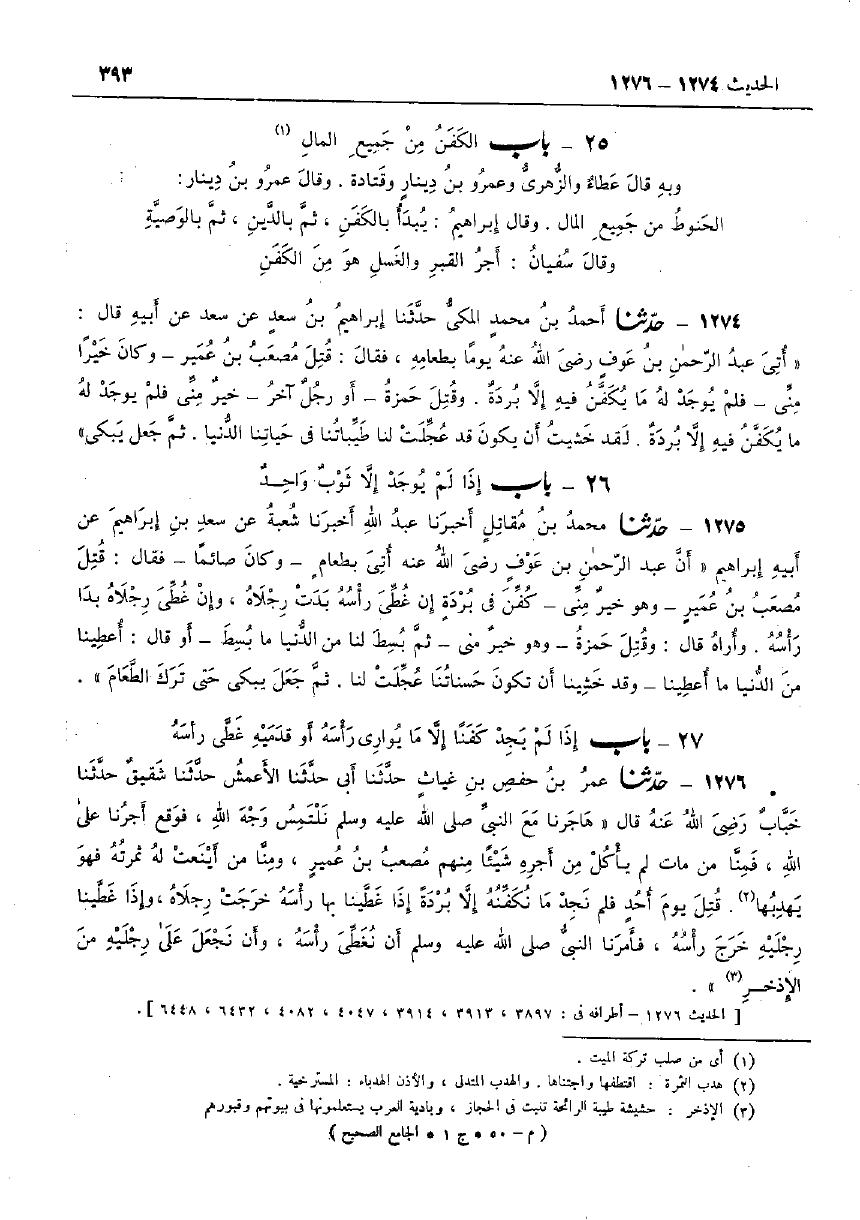 الحديث ١٢٧٤ – ١٢٧٦ ٣٩٣
٢٥ – باب الكَفَنُ مِنْ جَمِيعِ المالِ (١)
وبهِ قالَ عَطاءٌ والزُّهرىُّ وعمرُو بنُ دِينارٍ وقَتادة . وقالَ عمرُو بنُ دِينار :
الحَنوطُ من جَمِيعِ المال . وقال إبراهيمُ : يُبدَأُ بالكَفَنِ ، ثمَّ بالدَّينِ ، ثمَّ بالوَصيَّةِ
وقالَ سُفيانُ : أجرُ القبرِ والغَسلِ هوَ مِنَ الكَفَنِ
١٢٧٤ – حدّثنا أحمدُ بنُ محمدٍ المكىُّ حدَّثَنا إبراهيمُ بنُ سعدٍ عن سعد عن أبيهِ قال :
« أُتِىَ عبدُ الرّحمٰنِ بنُ عَوفٍ رضىَ اللهُ عنهُ يومًا بطعامِهِ ، فقالَ : قُتِلَ مُصعَبُ بنُ عُمَير – وكانَ خَيْرًا
مِنِّى – فلمْ يُوجَدْ لهُ مَا يُكَفَّنُ فيهِ إلَّا بُردَةٌ . وقُتِلَ حمزةُ – أو رجُلٌ آخرُ – خيرٌ مِنِّى فلمْ يوجَدْ لهُ
ما يُكَفَّنُ فيهِ إلَّا بُردَةٌ . لَقد خَشيتُ أن يكونَ قد عُجِّلَتْ لنا طَيِّباتُنا فى حَياتِنا الدُّنيا . ثمَّ جَعل يَبكى»
٢٦ – باب إِذَا لَمْ يُوجَدْ إِلَّا ثَوْبٌ وَاحِدٌ
١٢٧٥ – حدّثنا محمدُ بنُ مُقاتِلٍ أخبرَنا عبدُ اللهِ أخبرَنا شُعبةُ عن سعدِ بنِ إبرَاهيمَ عن
أبيهِ إبراهيم « أنَّ عبد الرّحمٰنِ بن عَوْفٍ رضىَ اللهُ عنه أُتِىَ بطعامٍ – وكانَ صائمًا – فقال : قُتِلَ
مُصعَبُ بنُ عُميرٍ – وهو خيرٌ مِنِّى – كُفِّنَ فى بُرْدَةٍ إن غُطِّىَ رأسُهُ بَدَتْ رِجلَاهُ ، وإنْ غُطِّىَ رِجْلَاهُ بدَا
رَأْسُهُ . وأُراهُ قال : وقُتِلَ حَمزةُ – وهو خيرٌ منى – ثمَّ بُسِطَ لنا من الدُّنيا ما بُسِطَ – أو قال : أُعطِينا
منَ الدُّنيا ما أُعطِينا – وقد خَشِينا أن تكونَ حَسناتُنَا عُجِّلَتْ لنا . ثمَّ جَعَلَ يبكى حَتى تَرَكَ الطَّعَامَ » .
٢٧ – باب إِذَا لَمْ يَجِدْ كَفَنًا إِلَّا مَا يُوارِى رَأْسَهُ أو قدَمَيْهِ غَطَّى رأسَهُ
١٢٧٦ – حدّثنا عمرُ بنُ حفصِ بنِ غياثٍ حدَّثَنا أبى حدَّثَنا الأعمشُ حدَّثَنا شَقيقٌ حدَّثَنا
خَبَّابٌ رَضِىَ اللهُ عَنهُ قال « هَاجَرنا مَعَ النبىِّ صلى الله عليه وسلم نَلْتَمِسُ وَجْهَ اللهِ ، فوَقع أجرُنا علىٰ
اللهِ ، فَمِنَّا من مات لم يأْكُلْ مِن أجرِهِ شَيْئًا منهم مُصعبُ بنُ عُميرٍ ، ومِنَّا من أيْنَعتْ لهُ ثمرتُهُ فهوَ
يَهدِبُها(٢) . قُتِلَ يومَ أُحُدٍ فلم نَجِدْ مَا نُكَفِّنُهُ إلَّا بُرْدَةً إذَا غَطَّينا بها رأْسَهُ خرَجَتْ رِجلَاهُ ، وإذَا غَطَّينا
رِجْلَيْهِ خَرَجَ رأْسُهُ ، فأمرَنا النبىُّ صلى الله عليه وسلم أن نُغَطِّىَ رأْسَهُ ، وأن نَجْعَلَ عَلَىٰ رِجْلَيْهِ منَ
الإِذخرِ(٣) » .
[ الحديث ١٢٧٦ – أطرافه فى : ٣٨٩٧ ، ٣٩١٣ ، ٣٩١٤ ، ٤٠٤٧ ، ٤٠٨٢ ، ٦٤٣٢ ، ٦٤٤٨ ] .
(١) أى من صلب تركة الميت .
(٢) هدب الثمرة : اقتطفها واجتناها . والهدب المتدلى ، والأذن الهدباء : المسترخية .
(٣) الإذخر : حشيشة طيبة الرائحة تنبت فى الحجاز ، وبادية العرب يستعلمونها فى بيوتهم وقبورهم
( م – ٥٠ * ج ١ * الجامع الصحيح )